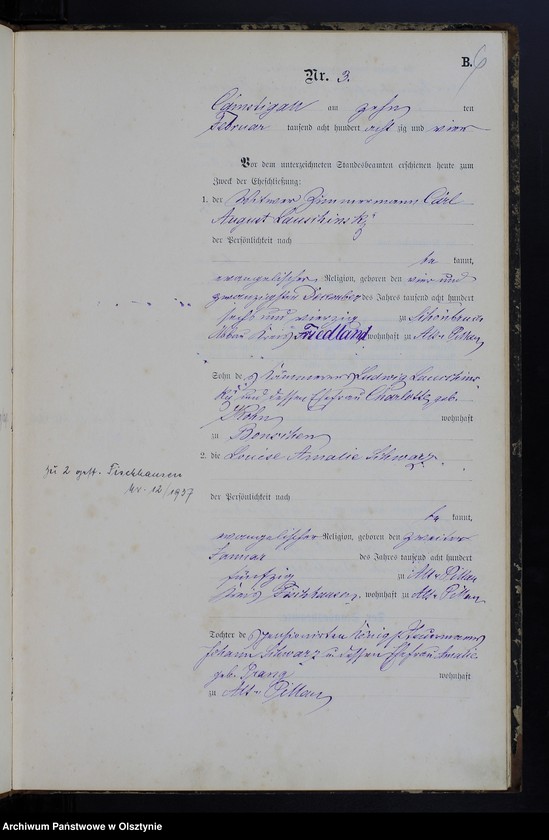 B. 6
Nr. 3.
Camstigall am zehn ten
Februar tausend acht hundert acht zig und vier
Vor dem unterzeichneten Standesbeamten erschienen heute zum
Zweck der Eheschließung:
1. der Witwer Zimmermann Carl
August
der Persönlichkeit nach
be kannt,
evangelischer Religion, geboren den vier und
zwanzigsten December des Jahres tausend acht hundert
sechs und vierzig zu
Kreis Friedland, wohnhaft zu Alt-Pillau
Sohn des Ludwig
und dessen Ehefrau Charlotte geb.
wohnhaft
zu
2. die Louise Amalie Schwarz
der Persönlichkeit nach
be kannt,
evangelischer Religion, geboren den zweiten
Januar des Jahres tausend acht hundert
fünfzig zu Alt-Pillau
Kreis Fischhausen, wohnhaft zu Alt-Pillau
zu 2 gest. Fischhausen
Nr. 12/1937
Tochter des pensionirten König.
Johann Schwarz u. dessen Ehefrau Amalie
geb. Prang wohnhaft
zu Alt-Pillau
Archiwum Państwowe w Olsztynie